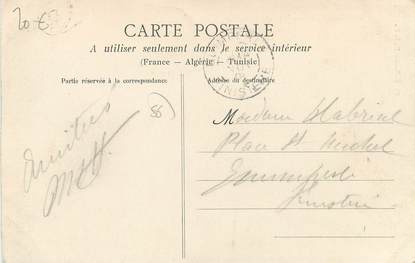 20 €
CARTE POSTALE
A utiliser seulement dans le service intérieur
(France — Algérie — Tunisie)
Partie réservée à la correspondance
Adresse du destinataire
TUNISIE
88
Amitiés
Madame
Place St Michel